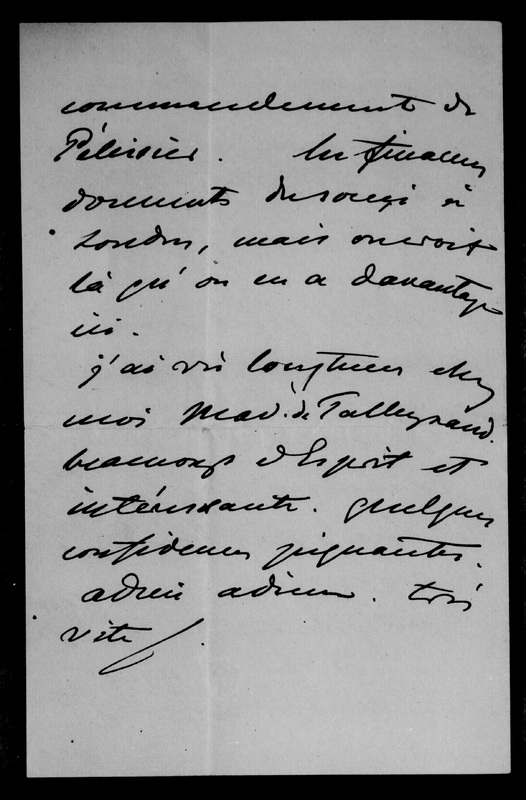 commandement de
Pélissier. les finances
donnent du souci à
Londres, mais on croit
là qu'on en a davantage
ici.
j'ai vu longtems chez
moi Mad. de Talleyrand.
beaucoup d'esprit et
intéressante. quelques
confidences piquantes.
adieu adieu. très
vite